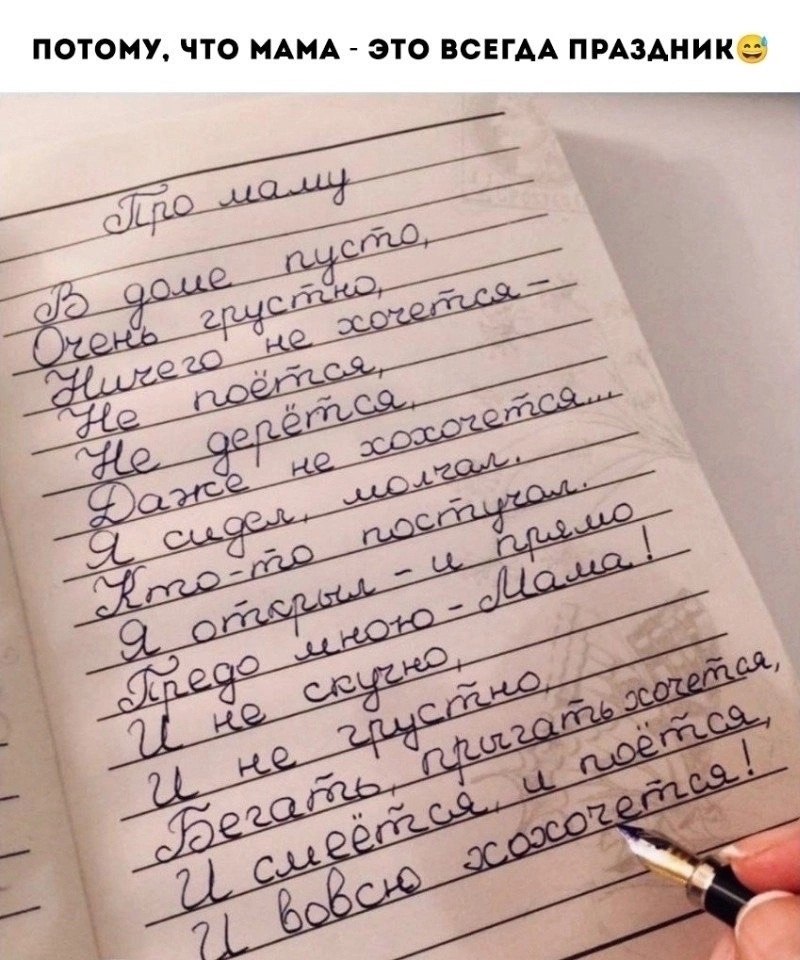 ПОТОМУ, ЧТО МАМА - ЭТО ВСЕГДА ПРАЗДНИК😅
Про маму
В доме пусто,
Очень грустно,
Ничего не хочется-
Не поётся,
Не дерётся,
Даже не хохочется...
Я сидел, молчал.
Кто-то постучал.
Я открыл - и прямо
Предо мною - Мама!
И не скучно,
И не грустно,
Бегать, прыгать хочется,
И смеётся, и поётся,
И вовсю хохочется!